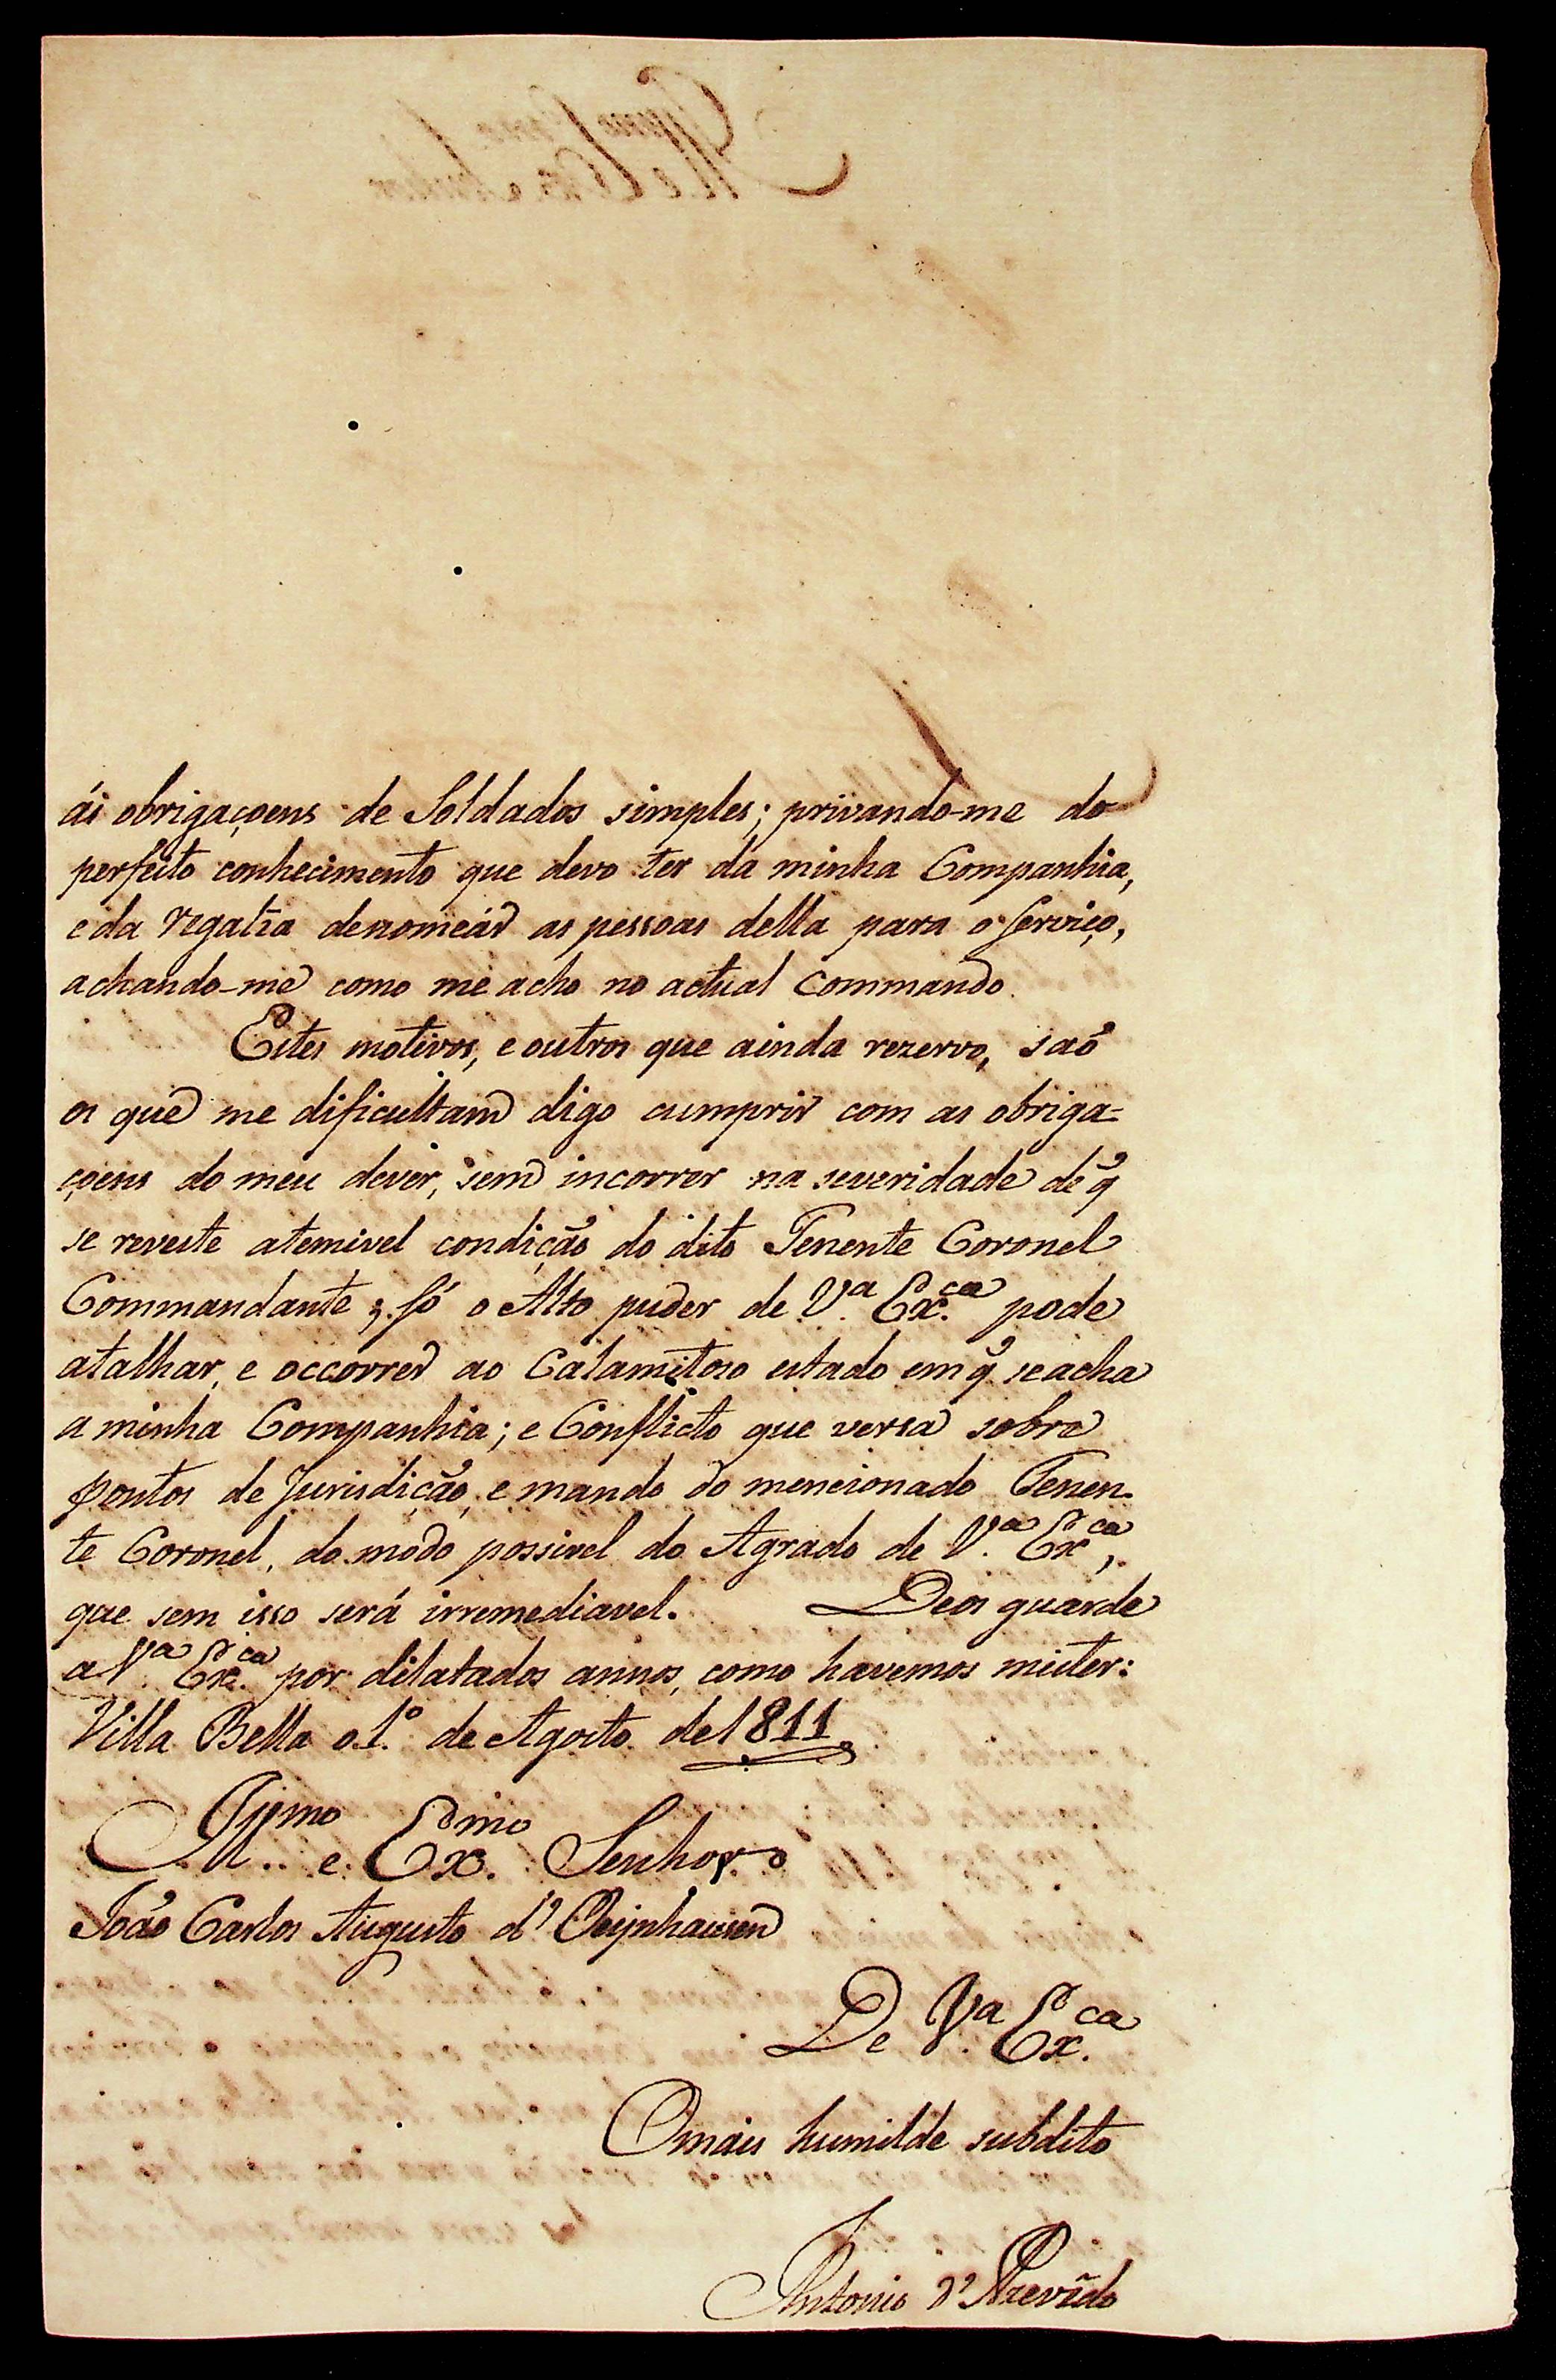 ás obrigaçoens de Soldados simples; privando-me do
perfeito conhecimento que devo ter da minha Companhia,
e da regalia denomeár as pessoas della para o Serviço,
achando-me como me acho no actual Commando.
Estes motivos, e outros que ainda rezervo, saó
os que me dificultam digo cumprir com as obriga=
çoens do meu dever, sem incorrer na severidade de q̃
se reveste atemivel condição do dito Tenente Coronel
Commandante; Só o Alto puder de V.ª Ex.ca pode
atalhar, e occorrer ao Calamitoso estado em q̃ se acha
a minha Companhia; e Conflicto que versa sobre
pontos de Jurisdição, e mando do mencionado Tenen-
te Coronel, do modo possivel do Agrado de V.ª Ex.ca,
que sem isso será irremediavel. Deos guarde
a V.ª Ex.ca por dilatados annos, como havemos mister:
Villa Bella o 1.º de Agosto de 1811
Illmo e Ex.mo Senhor
João Carlos Augusto d' Oeijnhausen
De V.ª Ex.ca
O mais humilde subdito
Antonio d' Azevedo